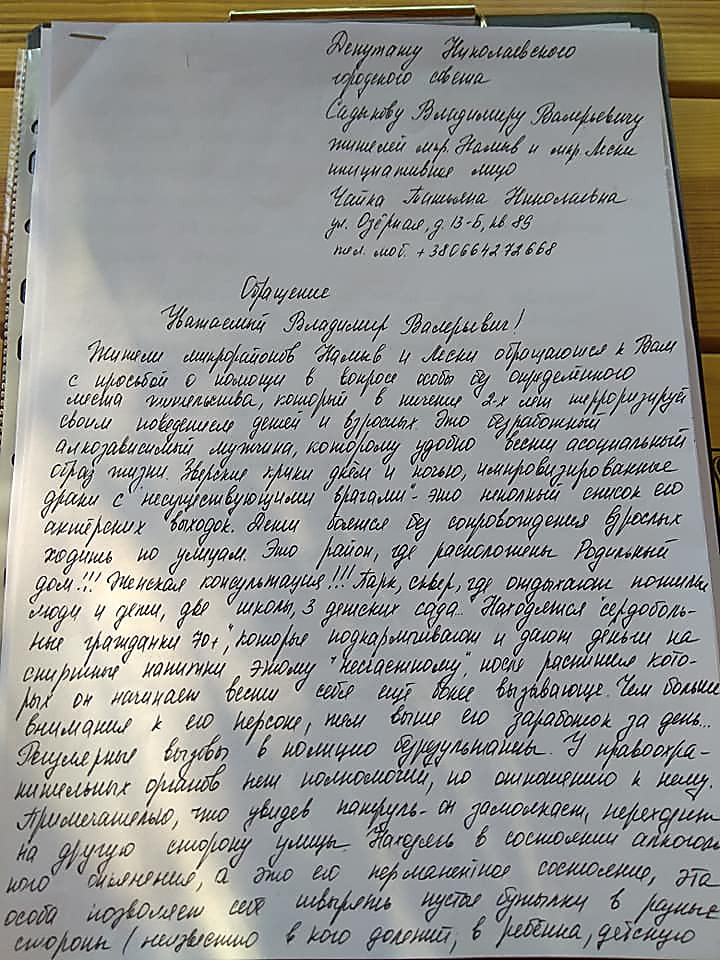 Депутату Николаевского
городского совета
Садыкову Владимиру Валерьевичу
жителей мкр. Намыв и мкр. Лески
инициативное лицо
Чайка Татьяна Николаевна
ул. Озёрная, д. 13-Б, кв. 89
тел. моб. +380664272668
Обращение
Уважаемый Владимир Валерьевич!
Жители микрорайонов Намыв и Лески обращаются к Вам
с просьбой о помощи в вопросе особы без определённого
места жительства, который в течение 2-х лет терроризирует
своим поведением детей и взрослых. Это безработный
алкозависимый мужчина, которому удобно вести асоциальный
образ жизни. Зверские крики днём и ночью, импровизированные
драки с "несуществующими врагами" - это неполный список его
актёрских выходок. Дети боятся без сопровождения взрослых
ходить по улицам. Это район, где расположены Родильный
дом!!! Женская консультация!!! Парк, сквер, где отдыхают пожилые
люди и дети, две школы, 3 детских сада... Находятся "сердоболь-
ные гражданки 70+", которые подкармливают и дают деньги на
спиртные напитки этому "несчастному", после распития кото-
рых он начинает вести себя ещё более вызывающе. Чем больше
внимания к его персоне, тем выше его заработок за день...
Регулярные вызовы в полицию безрезультатны. У правоохра-
нительных органов нет полномочий, по отношению к нему.
Примечательно, что увидев патруль - он замолкает, переходит
на другую сторону улицы. Находясь в состоянии алкоголь
ного опьянения, а это его перманентное состояние, эта
особа позволяет себе швырять пустые бутылки в разные
стороны (неизвестно в кого долетит, в ребёнка, детскую